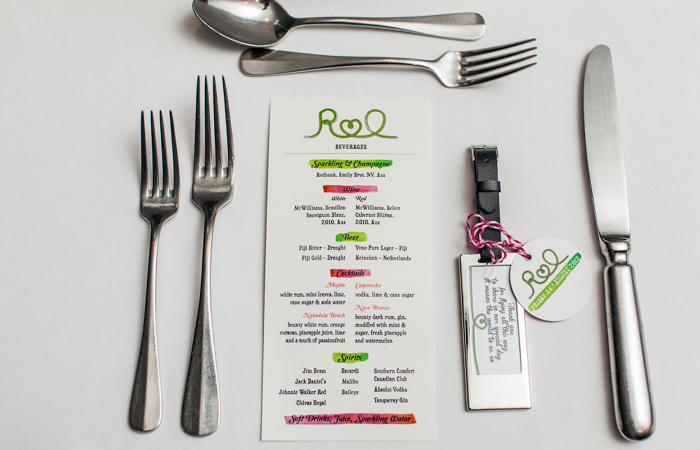 R L
BEVERAGES
Sparkling & Champagne
Redbank, Emily Brut, NV, Aus
Wine
White
McWilliams, Semillon
Sauvignon Blanc,
2010, Aus
Red
McWilliams, Select
Cabernet Shiraz,
2010, Aus
Beer
Fiji Bitter – Draught
Fiji Gold – Draught
Vonu Pure Lager – Fiji
Heineken – Netherlands
Cocktails
Mojito
white rum, mint leaves, lime,
cane sugar & soda water
Natadola Beach
bounty white rum, orange
curacao, pineapple juice, lime
and a touch of passionfruit
Caipiroska
vodka, lime & cane sugar
Novo Breeze
bounty dark rum, gin,
muddled with mint &
sugar, fresh pineapple
and watermelon.
Spirits
Jim Beam
Jack Daniel's
Johnnie Walker Red
Chivas Regal
Bacardi
Malibu
Baileys
Southern Comfort
Canadian Club
Absolut Vodka
Tanqueray Gin
Soft Drinks, Juice, Sparkling Water
Thank you
for flying all this way
to share in our special day.
it means the world to us. xo
R L
FRIDAY 24 AUGUST 2012